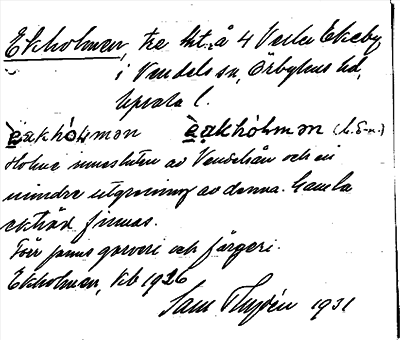 Ekholmen, tre lht. å 4 Vestu Ekeby
i Vendels sn, Örbyhus hd,
Upsala l.
èakhó4mǝn èakhòhmǝn (h.S-n.)
Holme innesluten av Vendelsån och en
mindre utgrening av denna. Gamla
ekträd finnas.
Förr fanns garveri och färgeri.
Ekholmen, kb 1926
Sam Thydén 1931